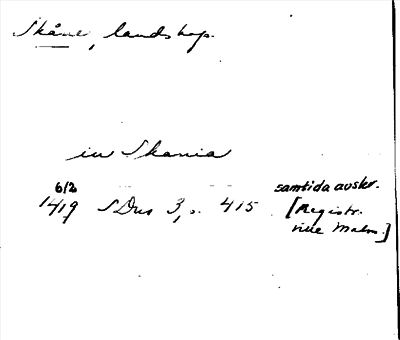 Skåne, landskap.
in Skania
6/2
1419 SDns 3, s. 415 samtida avskr.
[Registr.
ville Malm.]